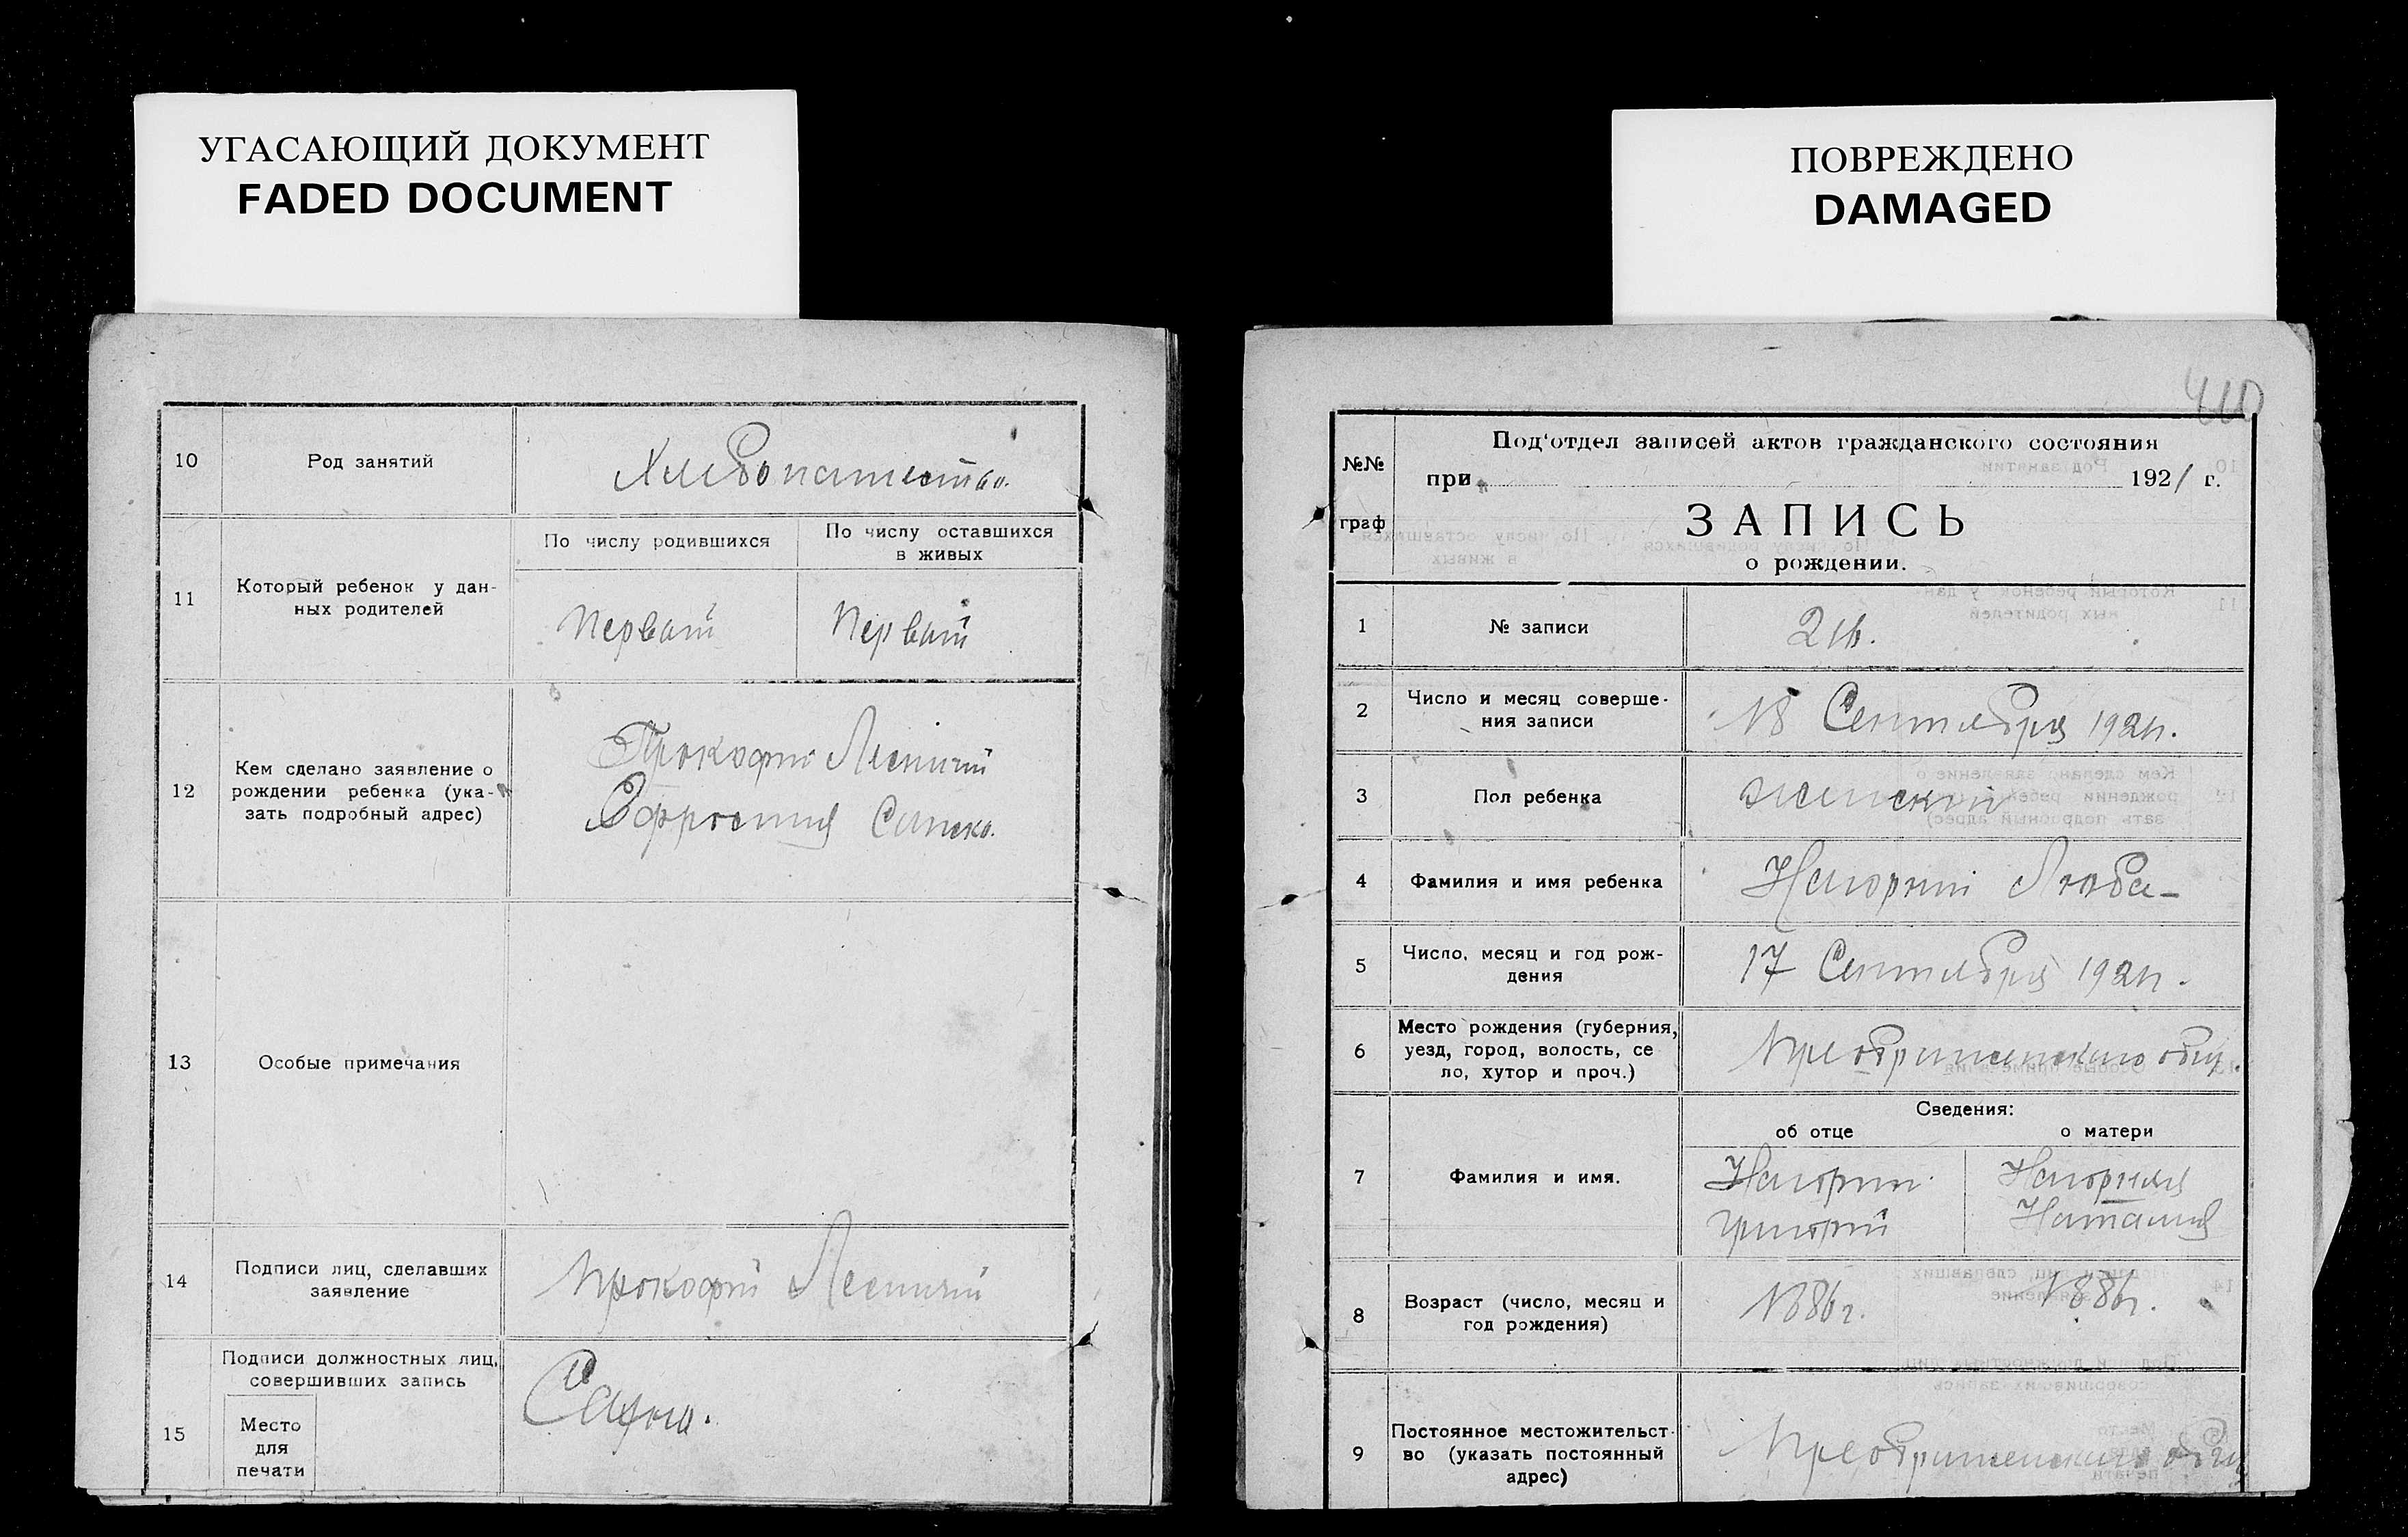 УГАСАЮЩИЙ ДОКУМЕНТ
FADED DOCUMENT
10
Род занятий
11
Который ребенок у дан-
ных родителей
По числу родившихся
По числу оставшихся
в живых
Первый
Первый
12
Кем сделано заявление о
рождении ребенка (ука-
зать подробный адрес)
Прокофий
13
Особые примечания
14
Подписи лиц, сделавших
заявление
Прокофий
15
Подписи должностных лиц,
совершивших запись
Место
для
печати
ПОВРЕЖДЕНО
DAMAGED
410
№№
граф
Под'отдел записей актов гражданского состояния
при 1921 г.
ЗАПИСЬ
о рождении.
1
№ записи
216.
2
Число и месяц соверше-
ния записи
18 Сентября 1921г.
3
Пол ребенка
женский
4
Фамилия и имя ребенка
Нагорний Люба
5
Число, месяц и год рож-
дения
17 Сентября 1921г.
6
Место рождения (губерния,
уезд, город, волость, се
ло, хутор и проч.)
Сведения:
об отце
о матери
7
Фамилия и имя.
Нагорний
Григорий
Нагорная
Наталия
8
Возраст (число, месяц и
год рождения)
1886г.
1886г.
9
Постоянное местожительст-
во (указать постоянный
адрес)